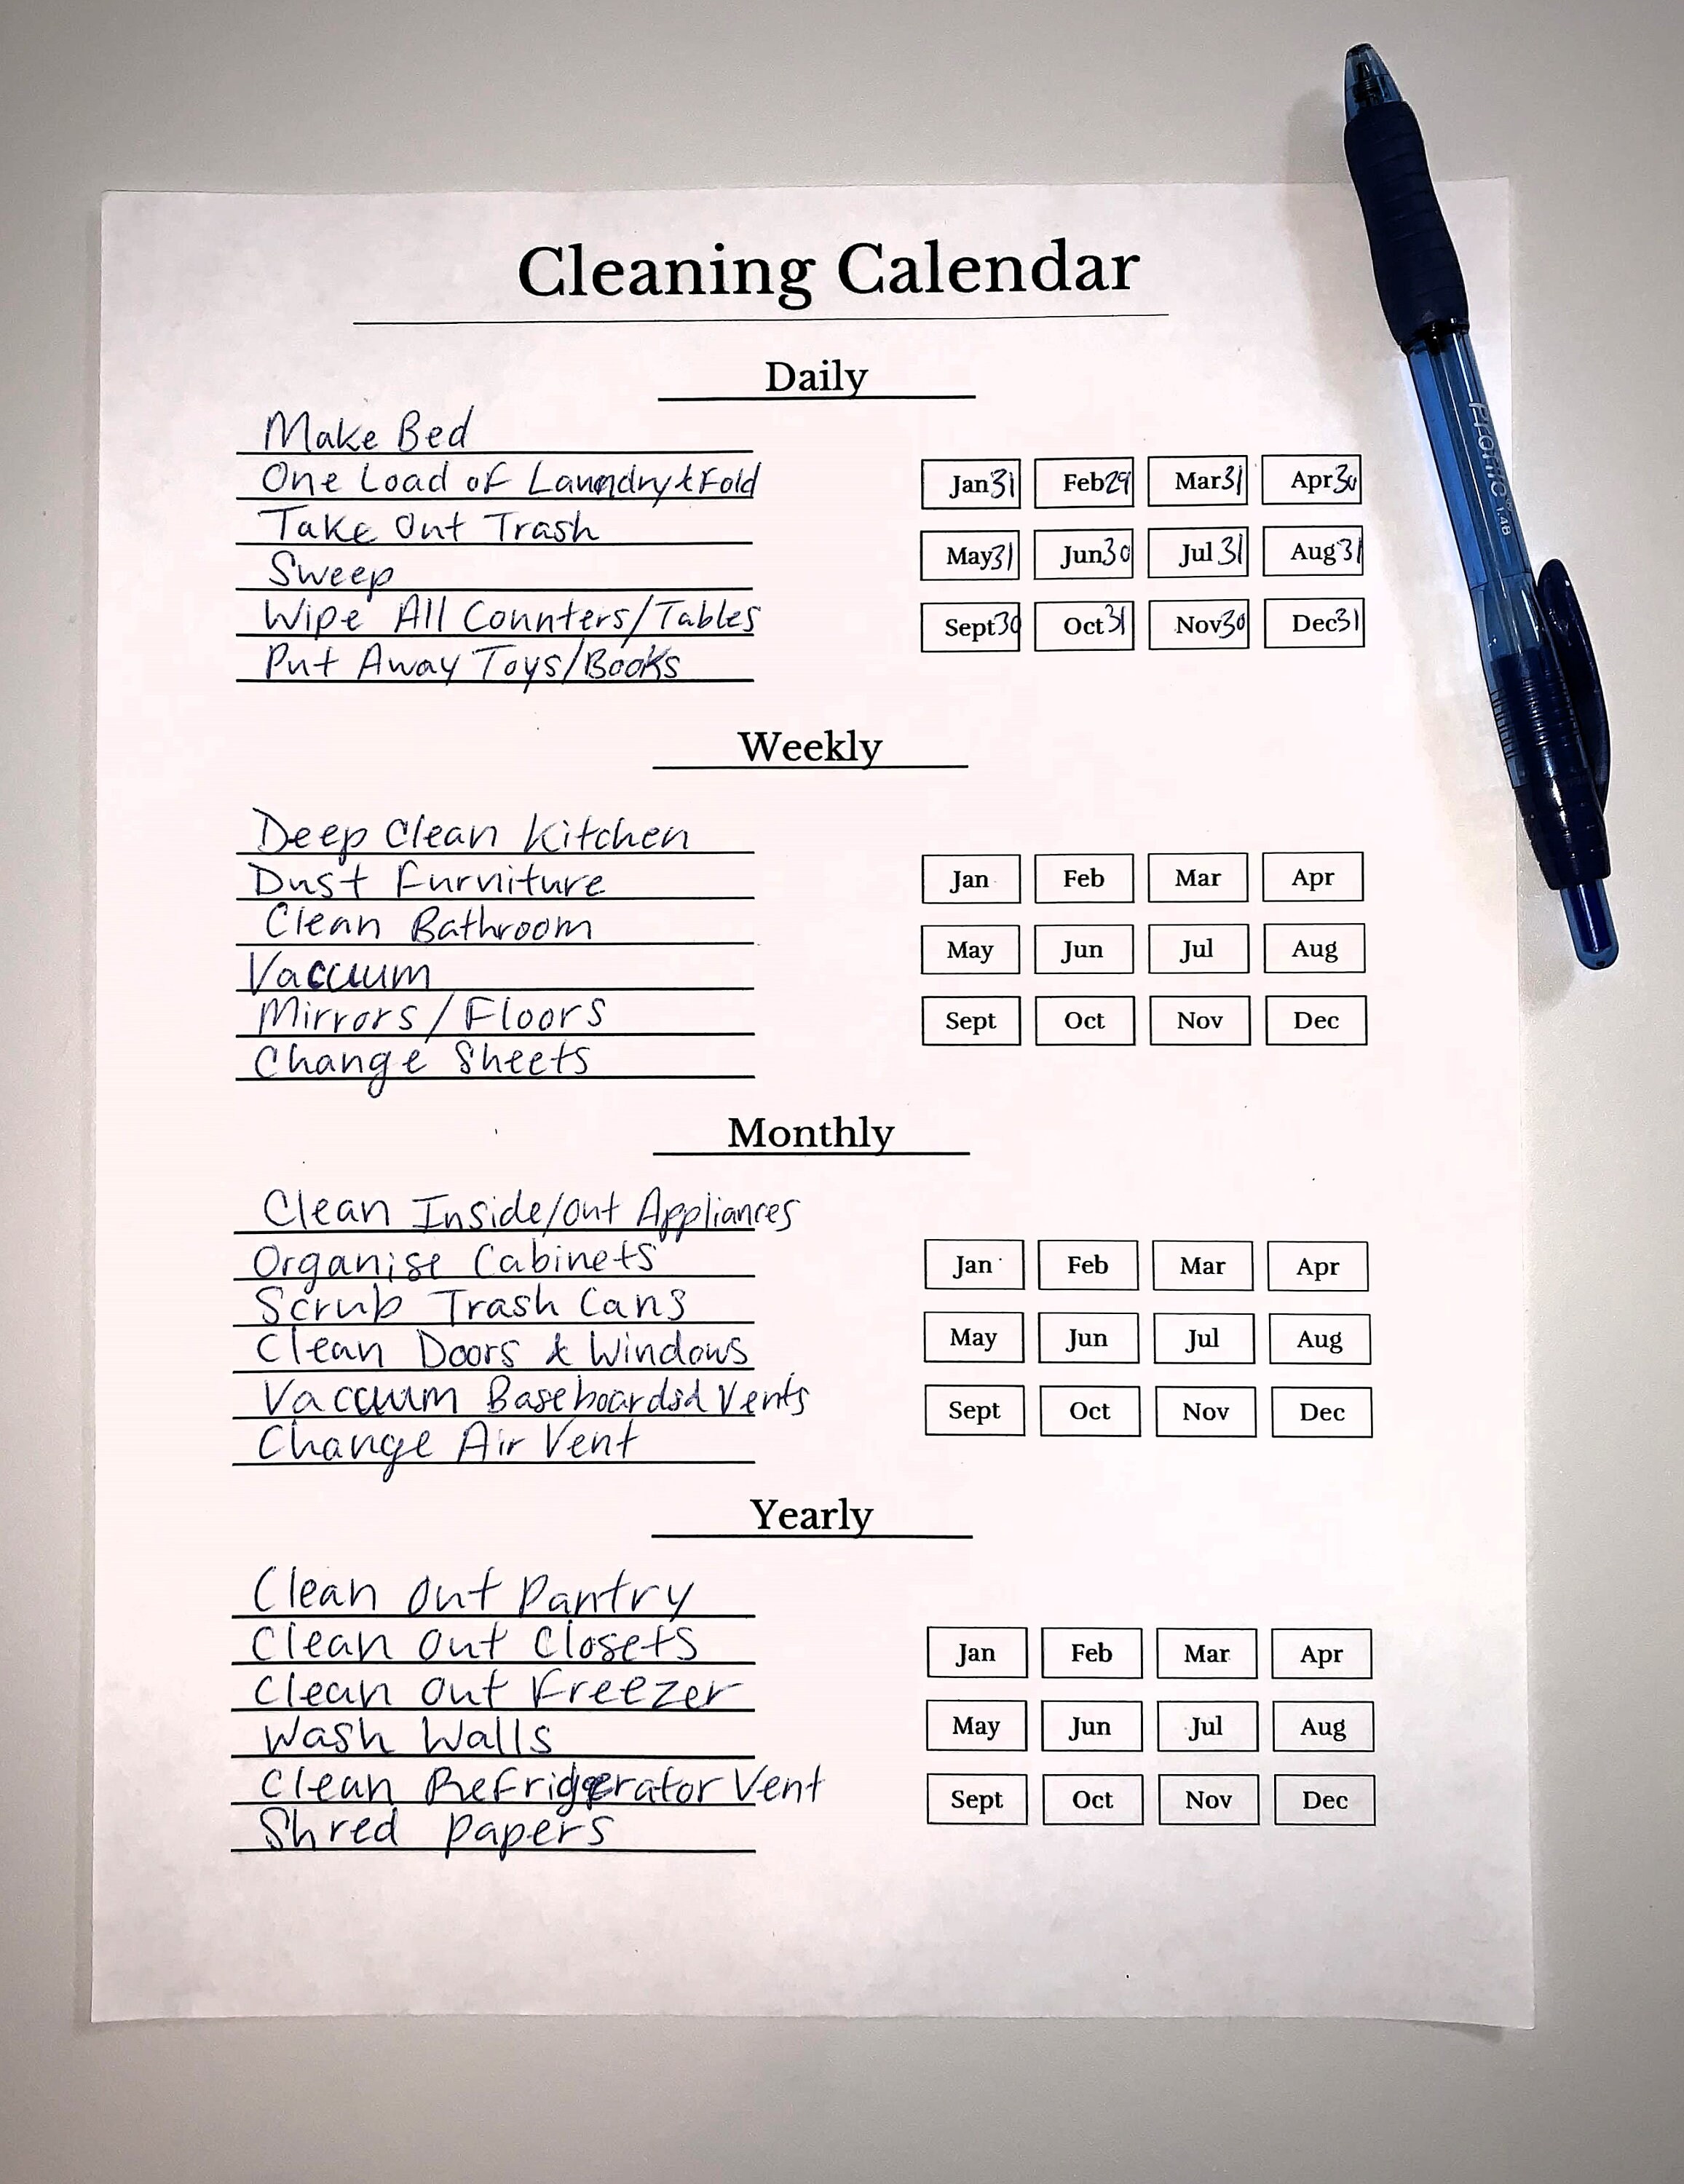 Cleaning Calendar
Daily
Make Bed
One Load of Laundry & Fold
Jan 31 Feb 29 Mar 31 Apr 30
Take Out Trash
Sweep
May 31 Jun 30 Jul 31 Aug 31
Wipe All Counters/Tables
Sept 30 Oct 31 Nov 30 Dec 31
Put Away Toys/Books
Weekly
Deep Clean Kitchen
Dust Furniture
Jan Feb Mar Apr
Clean Bathroom
May Jun Jul Aug
Vaccuum
Mirrors/Floors
Sept Oct Nov Dec
Change Sheets
Monthly
Clean Inside/Out Appliances
Organise Cabinets
Jan Feb Mar Apr
Scrub Trash Cans
Clean Doors & Windows
May Jun Jul Aug
Vaccuum Baseboards Vents
Sept Oct Nov Dec
Change Air Vent
Yearly
Clean Out Pantry
Clean Out Closets
Jan Feb Mar Apr
Clean Out Freezer
Wash Walls
May Jun Jul Aug
Clean Refridgerator Vent
Sept Oct Nov Dec
Shred Papers
Profile 1.4B